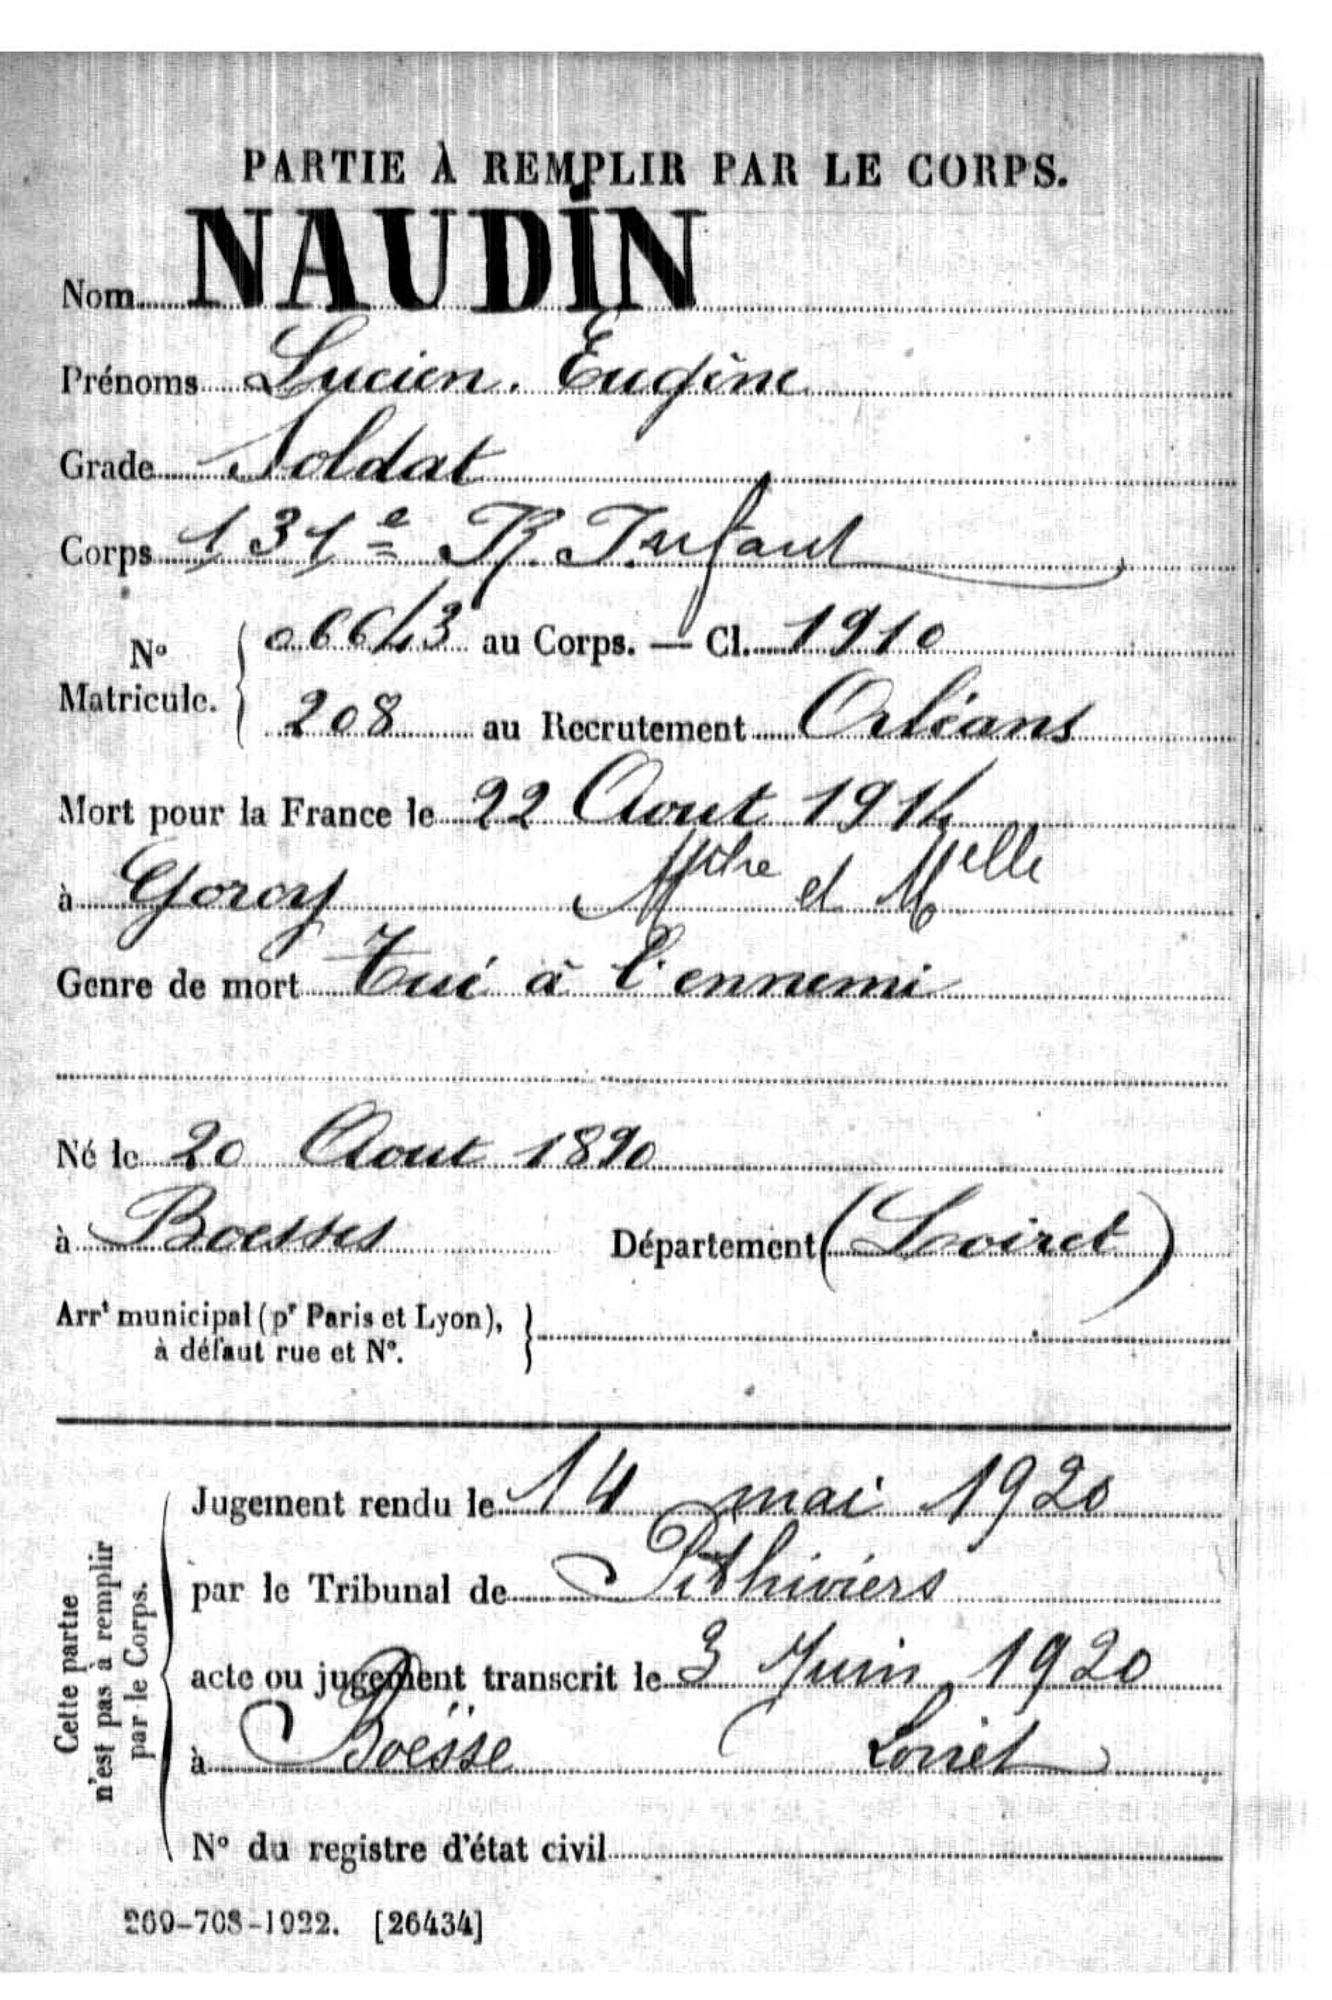 PARTIE À REMPLIR PAR LE CORPS.
Nom NAUDIN
Prénoms Lucien. Eugène
Grade Soldat
Corps 131e R. Infant
No Matricule. { 06643 au Corps. — Cl. 1910
208 au Recrutement Orléans
Mort pour la France le 22 Aout 1914
à Gorcy Mthe et Melle
Genre de mort Tué à l'ennemi
Né le 20 Aout 1890
à Boesses Département (Loiret)
Arrt municipal (pr Paris et Lyon), }
à défaut rue et No.
Cette partie n'est pas à remplir par le Corps.
Jugement rendu le 14 mai 1920
par le Tribunal de Pithiviers
acte ou jugement transcrit le 3 Juin 1920
à Boësse (Loiret)
No du registre d'état civil
269-708-1922. [26434]